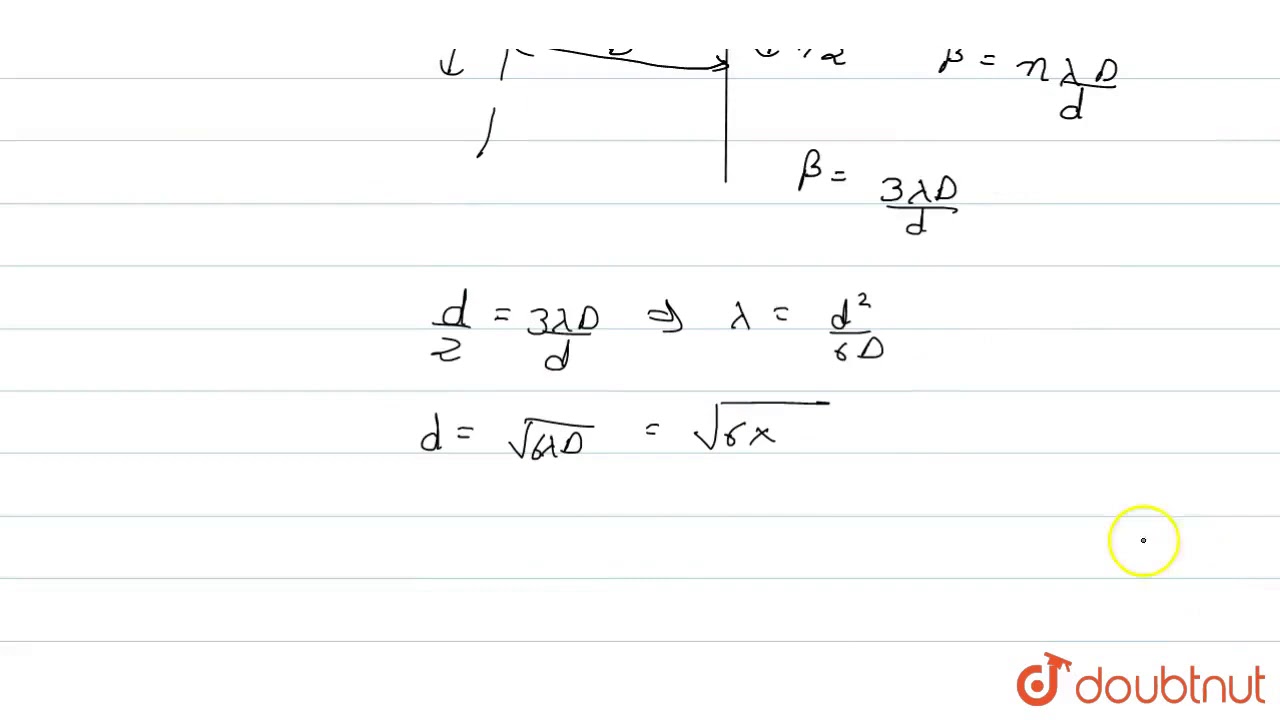 β = nλD/d
β = 3λD/d
d/2 = 3λD/d ⇒ λ = d²/6D
d = √6λD = √6x
doubtnut